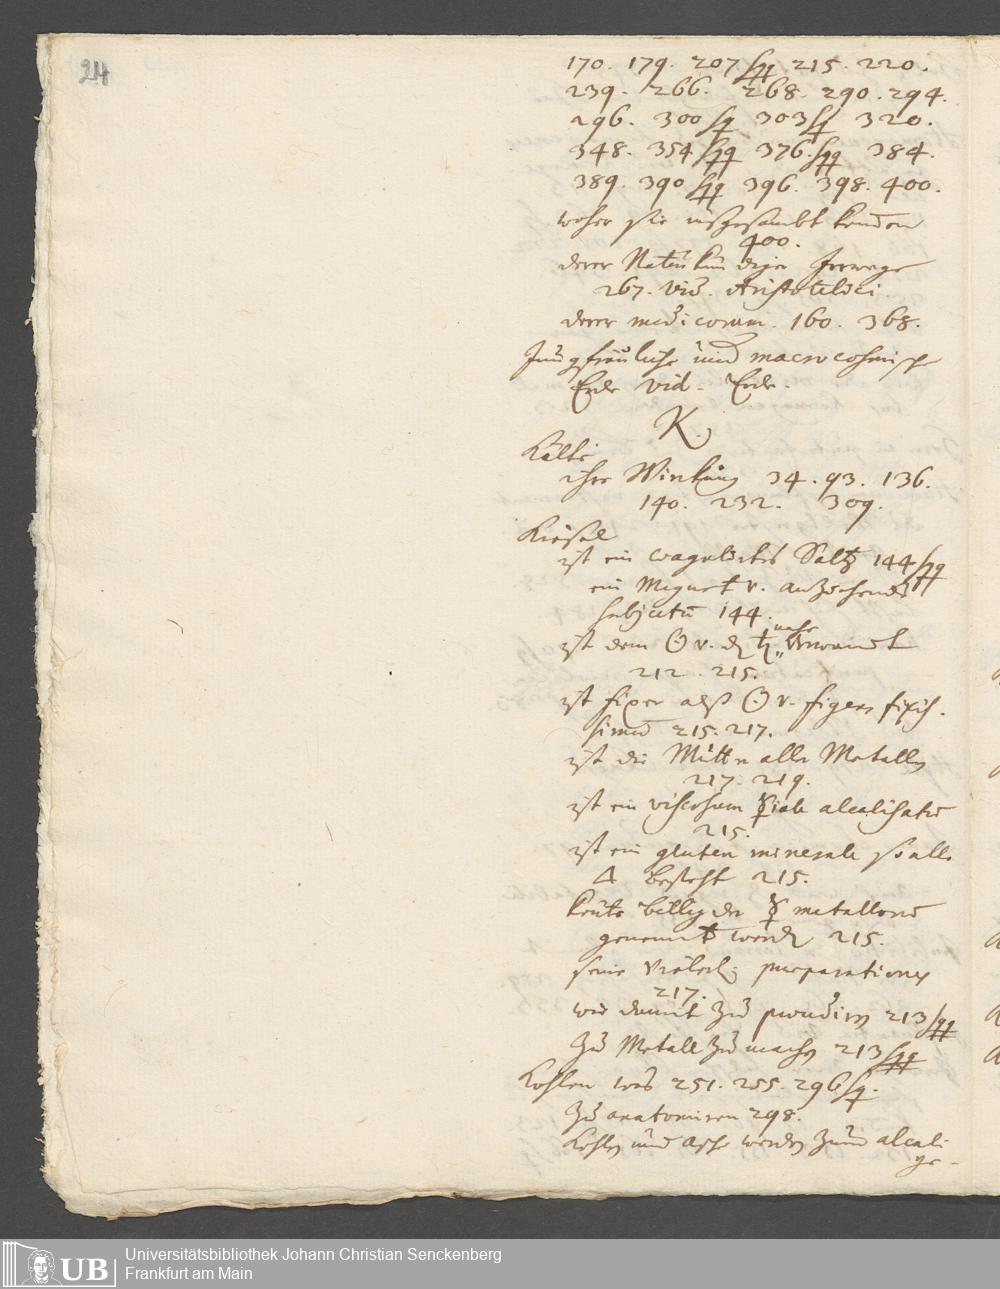 24
170. 179. 207 sqq. 215. 220.
239. 266. 268. 290. 294.
296. 300 sq 303 sq 320.
348. 354 sqq 376. sqq 384.
389. 390 sqq 396. 398. 400.
woher sie insgesambt
400.
derer Naturkündiger Irrwege
267. vid. Aristotelici
derer medicorum. 160. 368.
Jungfräuliche und macrocosmisch
Erde vid. Erde.
K.
Kälte
ihre Wirkung 34. 93. 136.
140. 232. 309.
Kiesel
ist ein coagulirtes Saltz 144 sqq
ein Magnet v. anziehendes
subjectū 144.
ist dem ☉ v. ♄ nahe verwandt
212. 215.
ist fixer alß ☉ v. figens fixis-
simū 215. 217.
ist die Mutter aller Metallen
217. 219.
ist ein viscosum ☿iale alcalisatū
215.
ist ein gluten minerale so alle
🜂 besteht 215.
könte billig der ☿ metallorū
genennt werden 215.
seine præparationes
217.
wie damit zu procediren 213 sqq
zu Metall zu machen 213 sqq
Kohlen was 251. 255. 296 sq.
zu anatomiren 298.
Kohlen und Asche werden zum alcali
ge-
Universitätsbibliothek Johann Christian Senckenberg
UB Frankfurt am Main